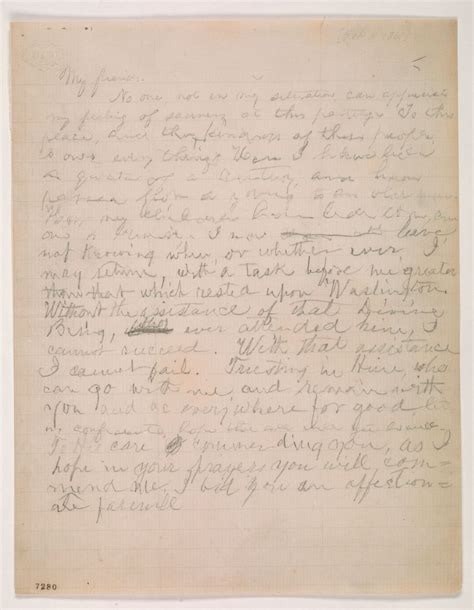 My friends.
No one not in my situation can appreciate
my feeling of sadness at this parting. To this
place, and the kindness of these people
I owe every thing. Here I have been
a quarter of a century, and have
passed from a young to an old man.
Here my children have been born, and
one is buried. I now leave
not knowing when, or whether ever, I
may return, with a task before me greater
than that which rested upon Washington.
Without the assistance of that Divine
Being, ever attended him, I
cannot succeed. With that assistance
I cannot fail. Trusting in Him, who
can go with me, and remain with
you and be every where for good, let
us confidently hope that all will yet be well
To His care commending you, as I
hope in your prayers you will com-
mend me, I bid you an affection-
ate farewell
7280